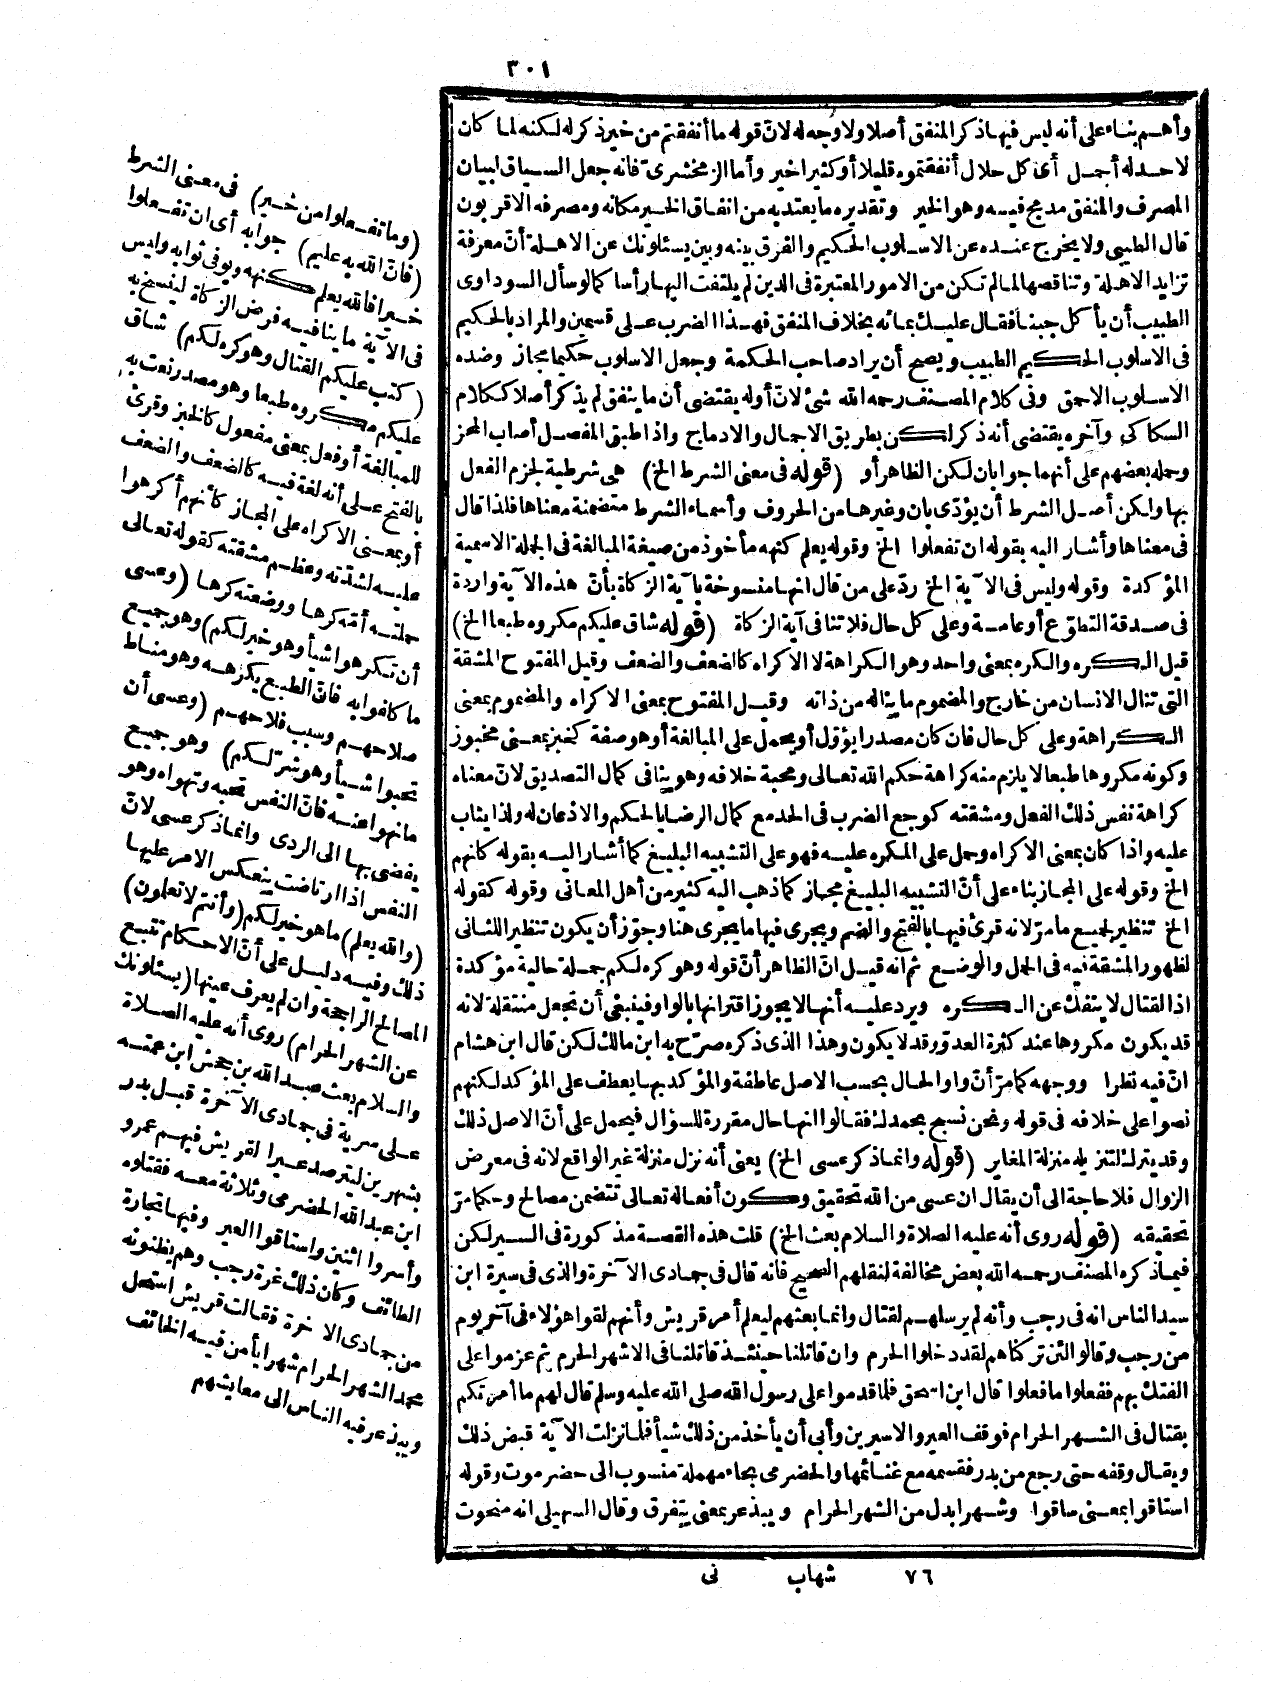 ٣٠١
وأهم بناء على أنه ليس فيها ذكر المنفق أصلا ولا وجه له لانّ قوله ما أنفقتم من خير ذكر له لكنه لما كان
لا حد له أجمل أى كل حلال أنفقتموه قليلا أو كثيرا خير وأما الزمخشرىّ فانه جعل السياق لبيان
المصرف والمنفق مدمج فيه وهو الخير وتقديره ما يعتد به من انفاق الخير مكانه ومصرفه الاقربون
قال الطيبى ولا يخرج عنده عن الاسلوب الحكيم والفرق بينه وبين يسئلونك عن الاهلة أنّ معرفة
تزايد الاهلة وتناقصها لما لم تكن من الامور المعتبرة فى الدين لم يلتفت اليها رأسا كما لو سأل السوداوى
الطبيب أن يأكل جبنا فقال عليك بمائه بخلاف المنفق فهذا الضرب على قسمين والمراد بالحكيم
فى الاسلوب الحكيم الطبيب ويصح أن يراد صاحب الحكمة وجعل الاسلوب حكيما مجاز وضده
الاسلوب الاحمق وفى كلام المصنف رحمه الله شئ لانّ أوله يقتضى أن ما ينفق لم يذكر أصلا ككلام
السكاكى وآخره يقتضى أنه ذكر لكن بطريق الاجمال والادماج واذا طبق المفصل أصاب المحز
وحمله بعضهم على أنهما جوابان لكن الظاهر أو (قوله فى معنى الشرط الخ) هى شرطية لجزم الفعل
بها ولكن أصل الشرط أن يؤدّى بان وغيرها من الحروف وأسماء الشرط متضمنة معناها فلذا قال
فى معناها وأشار اليه بقوله ان تفعلوا الخ وقوله يعلم كنهه مأخوذ من صيغة المبالغة فى الجملة الاسمية
المؤكدة وقوله وليس فى الآية الخ ردّ على من قال انها منسوخة بآية الزكاة بأنّ هذه الآية واردة
فى صدقة التطوّع أو عامة وعلى كل حال فلا تنافى آية الزكاة (قوله شاق عليكم مكروه طبعا الخ)
قيل الكره والكره بمعنى واحد وهو الكراهة لا الاكراه كالضعف والضعف وقيل المفتوح المشقة
التى تنال الانسان من خارج والمضموم ما يناله من ذاته وقيل المفتوح بمعنى الاكراه والمضموم بمعنى
الكراهة وعلى كل حال فان كان مصدرا يؤوّل أو يحمل على المبالغة أو هو صفة كخبز بمعنى مخبوز
وكونه مكروها طبعا لا يلزم منه كراهة حكم الله تعالى ومحبة خلافه وهو ينافى كمال التصديق لانّ معناه
كراهة نفس ذلك الفعل ومشقته كوجع الضرب فى الحد مع كمال الرضا بالحكم والاذعان له ولذا يثاب
عليه واذا كان بمعنى الاكراه وحمل على المكره عليه فهو على التشبيه البليغ كما أشار اليه بقوله كانهم
الخ وقوله على المجاز بناء على أنّ التشبيه البليغ مجاز كما ذهب اليه كثير من أهل المعانى وقوله كقوله
الخ تنظير لجميع ما مرّ لانه قرئ فيها بالفتح والضم ويجرى فيها ما يجرى هنا وجوّز أن يكون تنظير اللثانى
لظهور المشقة فيه فى الحمل والوضع ثم انه قيل انّ الظاهر أنّ قوله وهو كره لكم جملة حالية مؤكدة
اذ القتال لا ينفك عن الكره ويرد عليه أنها لا يجوز اقترانها بالواو فينبغى أن تجعل منتقلة لانه
قد يكون مكروها عند كثرة العدوّ وقد لا يكون وهذا الذى ذكره صرّح به ابن مالك لكن قال ابن هشام
انّ فيه نظرا ووجهه كما مرّ أنّ واو الحال بحسب الاصل عاطفة والمؤكد بها يعطف على المؤكد لكنهم
نصوا على خلافه فى قوله ونحن نسبح بحمدك فقالوا انها حال مقررة للسؤال فيحمل على أنّ الاصل ذلك
وقد يترك لتنزيله منزلة المغاير (قوله وانما ذكر عسى الخ) يعنى أنه نزل منزلة غير الواقع لانه فى معرض
الزوال فلا حاجة الى أن يقال ان عسى من الله تحقيق وكون أفعاله تعالى تتضمن مصالح وحكما مرّ
تحقيقه (قوله روى أنه عليه الصلاة والسلام بعث الخ) قلت هذه القصة مذكورة فى السير لكن
فيما ذكره المصنف رحمه الله بعض مخالفة لنقلهم الصحيح فانه قال فى جمادى الآخرة والذى فى سيرة ابن
سيد الناس انه فى رجب وأنه لم يرسلهم لقتال وانما بعثهم ليعلم أمر قريش وأنهم لقوا هؤلاء فى آخر يوم
من رجب وقالوا لئن تركناهم لقد دخلوا الحرم وان قاتلنا حينئذ قاتلنا فى الاشهر الحرم ثم عزموا على
الفتك بهم ففعلوا ما فعلوا قال ابن اسحق فلما قدموا على رسول الله صلى الله عليه وسلم قال لهم ما أمرتكم
بقتال فى الشهر الحرام فوقف العير والاسيرين وأبى أن يأخذ من ذلك شيأ فلما نزلت الآية قبض ذلك
ويقال وقفه حتى رجع من بدر فقسمه مع غنائمها والحضرمى بحاء مهملة منسوب الى حضرموت وقوله
استاقوا بمعنى ساقوا وشهرا بدل من الشهر الحرام ويبذعر بمعنى يتفرق وقال السهيلى انه منحوت
٧٦ شهاب نى
(وما تفعلوا من خير) فى معنى الشرط
(فانّ الله به عليم) جوابه أى ان تفعلوا
خيرا فالله يعلم كنهه ويوفى ثوابه وليس
فى الآية ما ينافيه فرض الزكاة لينسخ به
(كتب عليكم القتال وهو كره لكم) شاق
عليكم مكروه طبعا وهو مصدر نعت به
للمبالغة أو فعل بمعنى مفعول كالخبز وقرئ
بالفتح على أنه لغة فيه كالضعف والضعف
أو بمعنى الاكراه على المجاز كأنهم أكرهوا
عليه لشدّته وعظم مشقته كقوله تعالى
حملته أمّه كرها ووضعته كرها (وعسى
أن تكرهوا شيأ وهو خير لكم) وهو جميع
ما كلفوا به فانّ الطبع يكرهه وهو مناط
صلاحهم وسبب فلاحهم (وعسى أن
تحبوا شيأ وهو شرّ لكم) وهو جميع
ما نهوا عنه فانّ النفس تحبه وتهواه وهو
يفضى بها الى الردى وانما ذكر عسى لانّ
النفس اذا ارتاضت ينعكس الامر عليها
(والله يعلم) ما هو خير لكم (وأنتم لا تعلمون)
ذلك وفيه دليل على أنّ الاحكام تتبع
المصالح الراجحة وان لم يعرف عينها (يسئلونك
عن الشهر الحرام) روى أنه عليه الصلاة
والسلام بعث عبد الله بن جحش ابن عمته
على سرية فى جمادى الآخرة قبل بدر
بشهرين ليترصد عيرا لقريش فيهم عمرو
ابن عبد الله الحضرمى وثلاثة معه فقتلوه
وأسروا اثنين واستاقوا العير وفيها تجارة
الطائف وكان ذلك غرة رجب وهم يظنونه
من جمادى الآخرة فقالت قريش استحل
محمد الشهر الحرام شهرا يأمن فيه الخائف
ويبذعر فيه الناس الى معايشهم